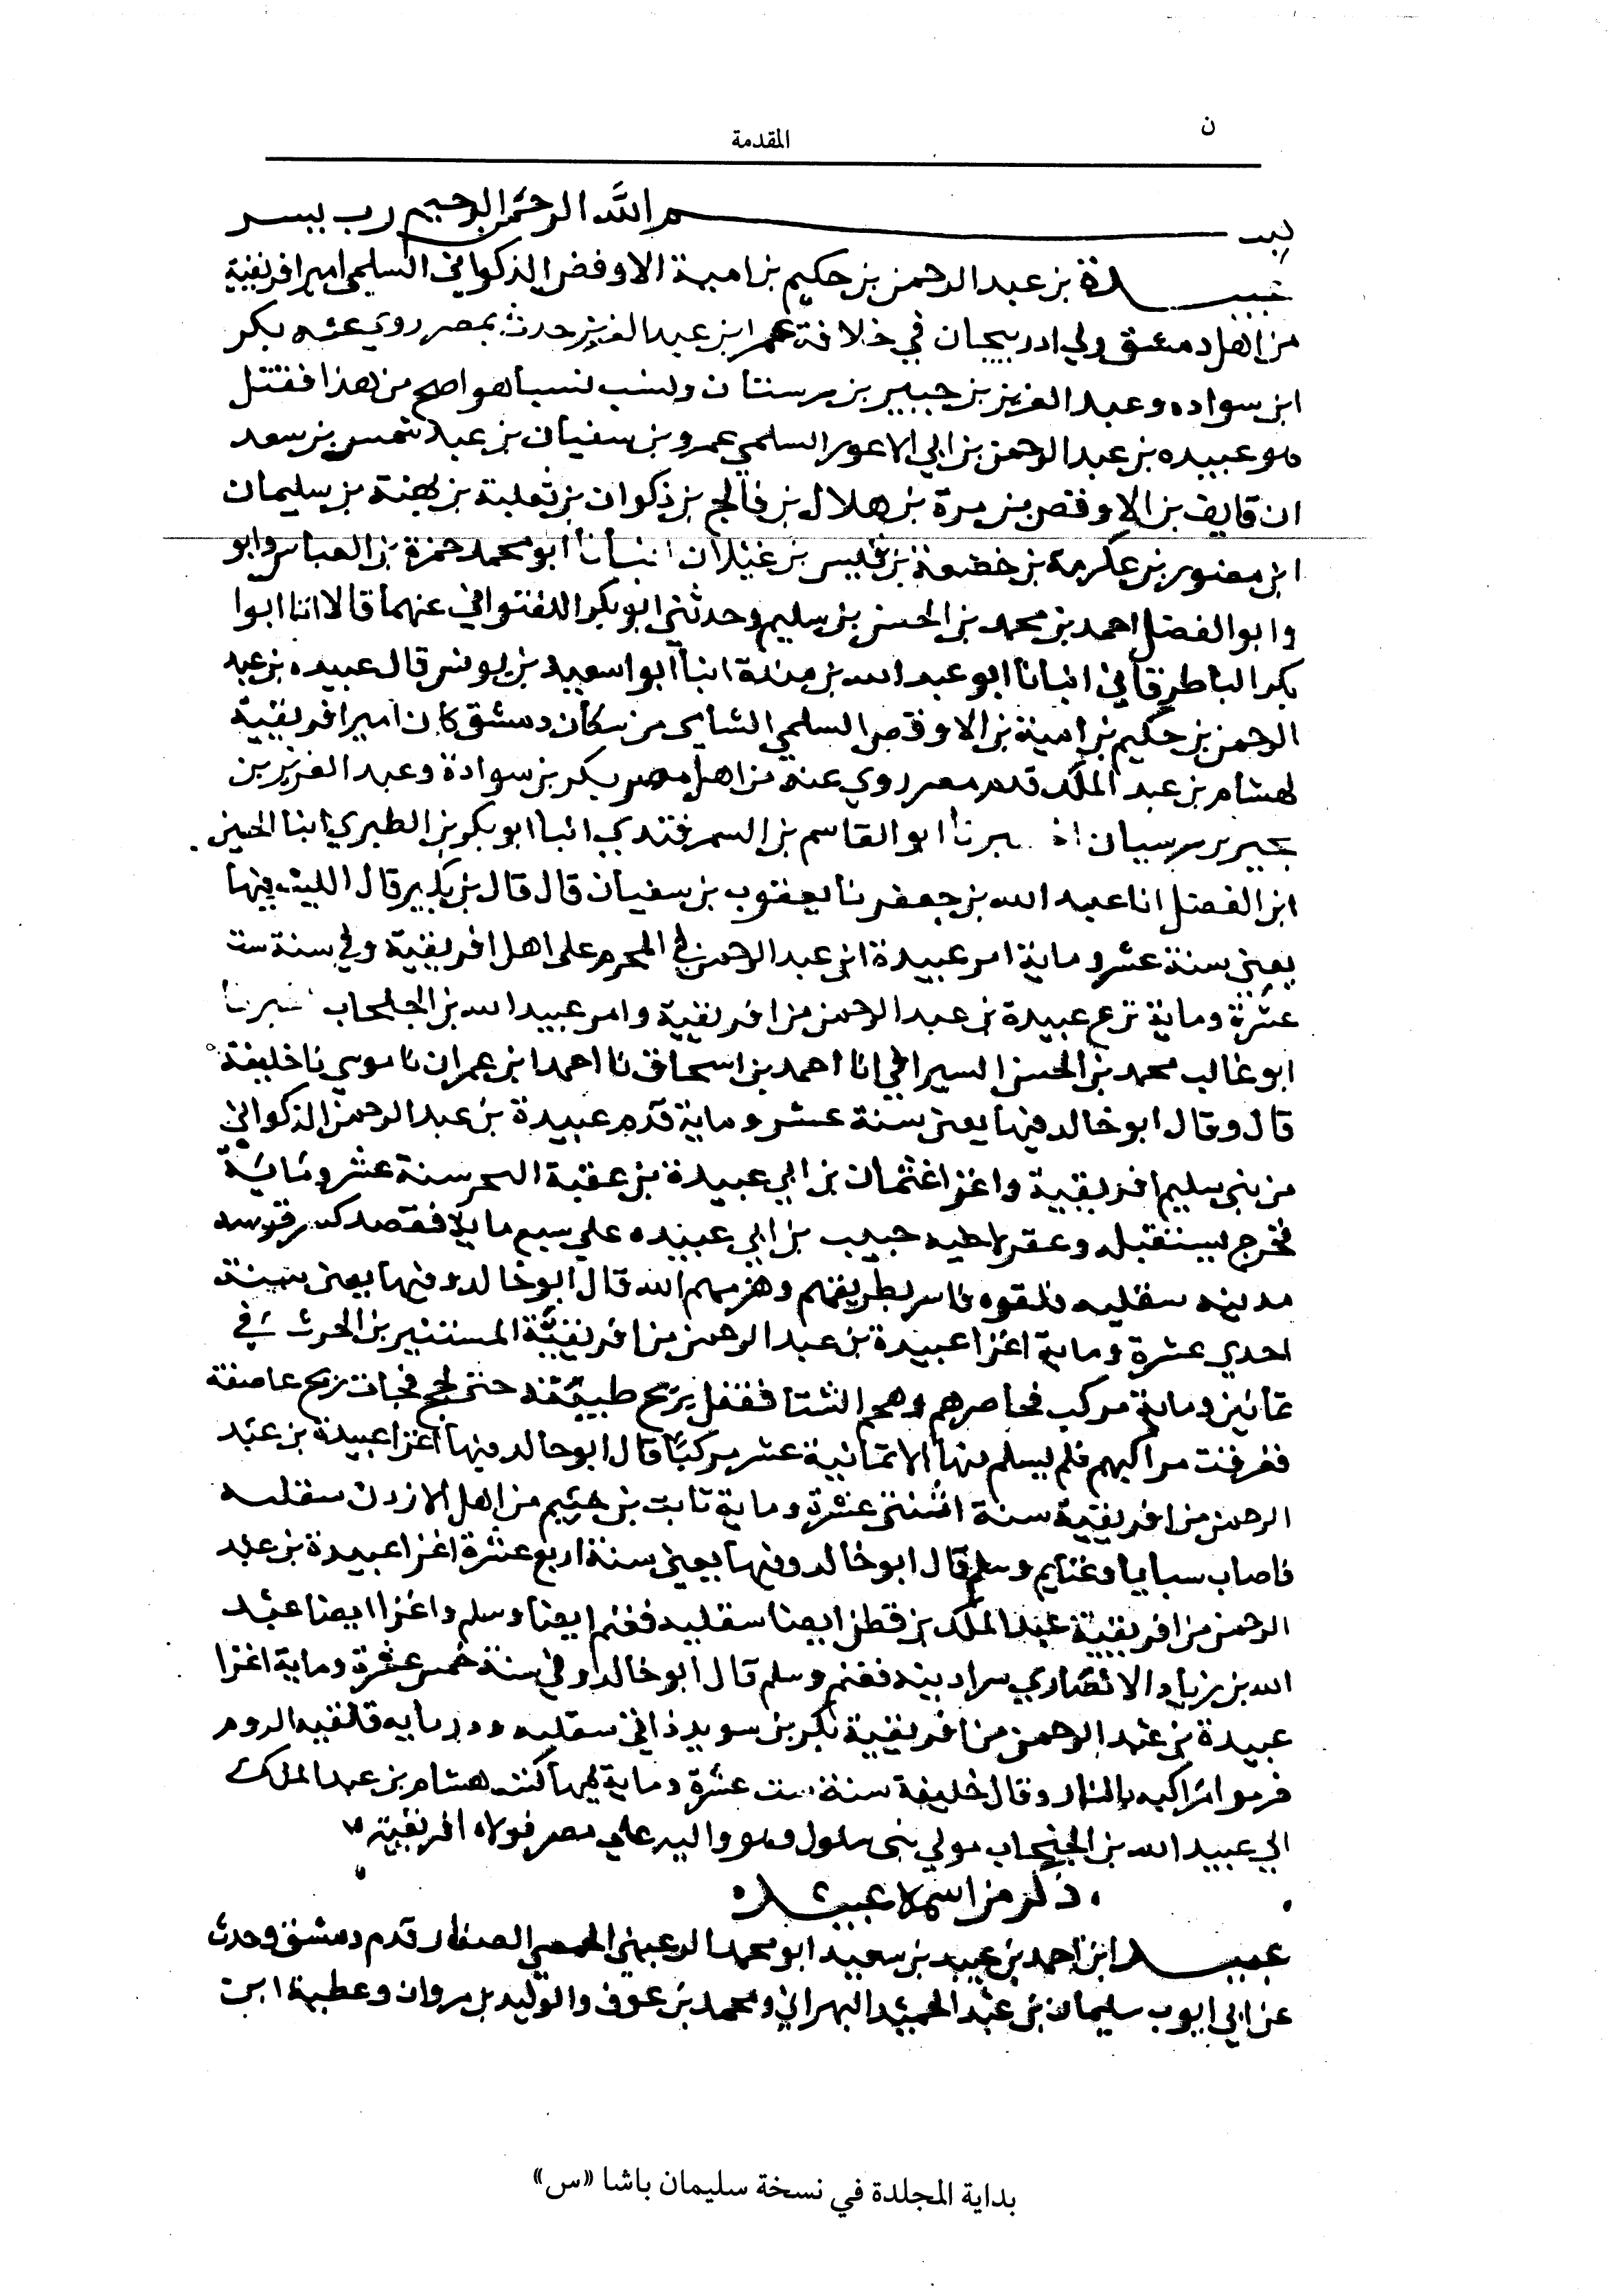 ن
المقدمة
بسم الله الرحمن الرحيم رب يسر
عبيدة بن عبد الرحمن بن حكيم بن امية الاوقص الذكواني السلمي امير افريقية
من اهل دمشق ولي ادربيجان في خلافة عمر ابن عبد العزيز حدث بمصر روي عنه بكر
ابن سواده وعبد العزيز بن جبير بن مرسنتان ونسب نسبا هو اصح من هذا فقيل
هو عبيده بن عبد الرحمن بن ابي الاعور السلمي عمرو بن سفيان بن عبد شمس بن سعد
ان قايف بن الاوقص بن مرة بن هلال بن فالج بن ذكوان بن ثعلبة بن بهثة بن سليمان
ابن منصور بن عكرمة بن خصفة بن قيس بن غيلان انبأنا ابو محمد حمزة بن العباس وابو
وابو الفضل احمد بن محمد بن الحسن بن سليم وحدثني ابو بكر اللفتواني عنهما قالا انا ابوا
بكر الباطرقاني انبانا ابو عبد الله بن مندة انبأ ابو اسعيد بن يونس قال عبيده بن عبد
الرحمن بن حكيم بن امية بن الاوقص السلمي الشامي من سكان دمشق كان امير افريقية
لهشام بن عبد الملك قدم مصر روي عنه من اهل مصر بكر بن سوادة وعبد العزيز بن
جبير بن مرسيان اخبرنا ابو القاسم بن السمرقندي انبا ابو بكر بن الطبري ابنا الحسين
ابن الفضل انا عبد الله بن جعفر نا يعقوب بن سفيان قال قال بن بكير قال الليث فيها
يعني سنة عشر وماية امر عبيدة ابن عبد الرحمن في المحرم على اهل افريقية وفي سنة ست
عشرة وماية نزع عبيدة بن عبد الرحمن من افريقية وامر عبيد الله بن الحبحاب اخبرنا
ابو غالب محمد بن الحسن السيرافي انا احمد بن اسحاق نا احمد ابن عمران نا موسي نا خليفة
قال وقال ابو خالد فيها يعني سنة عشر وماية قدم عبيدة بن عبد الرحمن الذكواني
من بني سليم افريقية واغزا عثمان بن ابي عبيدة بن عقبة البحر سنة عشر ومائية
فخرج يستقبله وعقد لاخيه حبيب بن ابي عبيده علي سبع مايه فقصد سرقوسه
مدينه سقليه فلقوه فاسر بطريقهم وهزمهم الله قال ابو خالد وفيها يعني سنة
احدي عشرة وماية اغزا عبيدة بن عبد الرحمن من افريقية المستنير بن الحرث في
ثمانين وماية مركب فحاصرهم وهجم الشتا فقفل بريح طيبة حتى لجج فجات ريح عاصفة
فغرقت مراكبهم فلم يسلم منها الا ثمانية عشر مركبا قال ابو خالد فيها اغزا عبيدة بن عبد
الرحمن من افريقية سنة اثنتي عشرة وماية ثابت بن خثيم من اهل الازدن سقليه
فاصاب سبايا وغنايم وسلم قال ابو خالد وفيها يعني سنة اربع عشرة اغزا عبيدة بن عبد
الرحمن من افريقية عبد الملك بن قطن ايضا سقليه فغنم ايضا وسلم واغزا ايضا عبد
الله بن زياد الانصاري سرادبيه فغنم وسلم قال ابو خالد وفي سنة خمس عشرة وماية اغزا
عبيدة بن عبد الرحمن من افريقية بكر بن سويد فاتى سقليه فلقيه الروم
فرموا مراكبه بالنار وقال خليفة سنة ست عشرة وماية فيها كتب هشام بن عبد الملك
الي عبيد الله بن الحبحاب مولي بني سلول وهو واليه علي مصر فولاه افريقية
ذكر من اسمه عبيد
عبيد ابن احمد بن عبيد بن سعيد ابو محمد الرعيني الحمصي الصفار قدم دمشق وحدث
عن ابي ايوب سليمان بن عبد الحميد البهراني ومحمد بن عوف والوليد بن مروان وعطية ابن
بداية المجلدة في نسخة سليمان باشا «س»